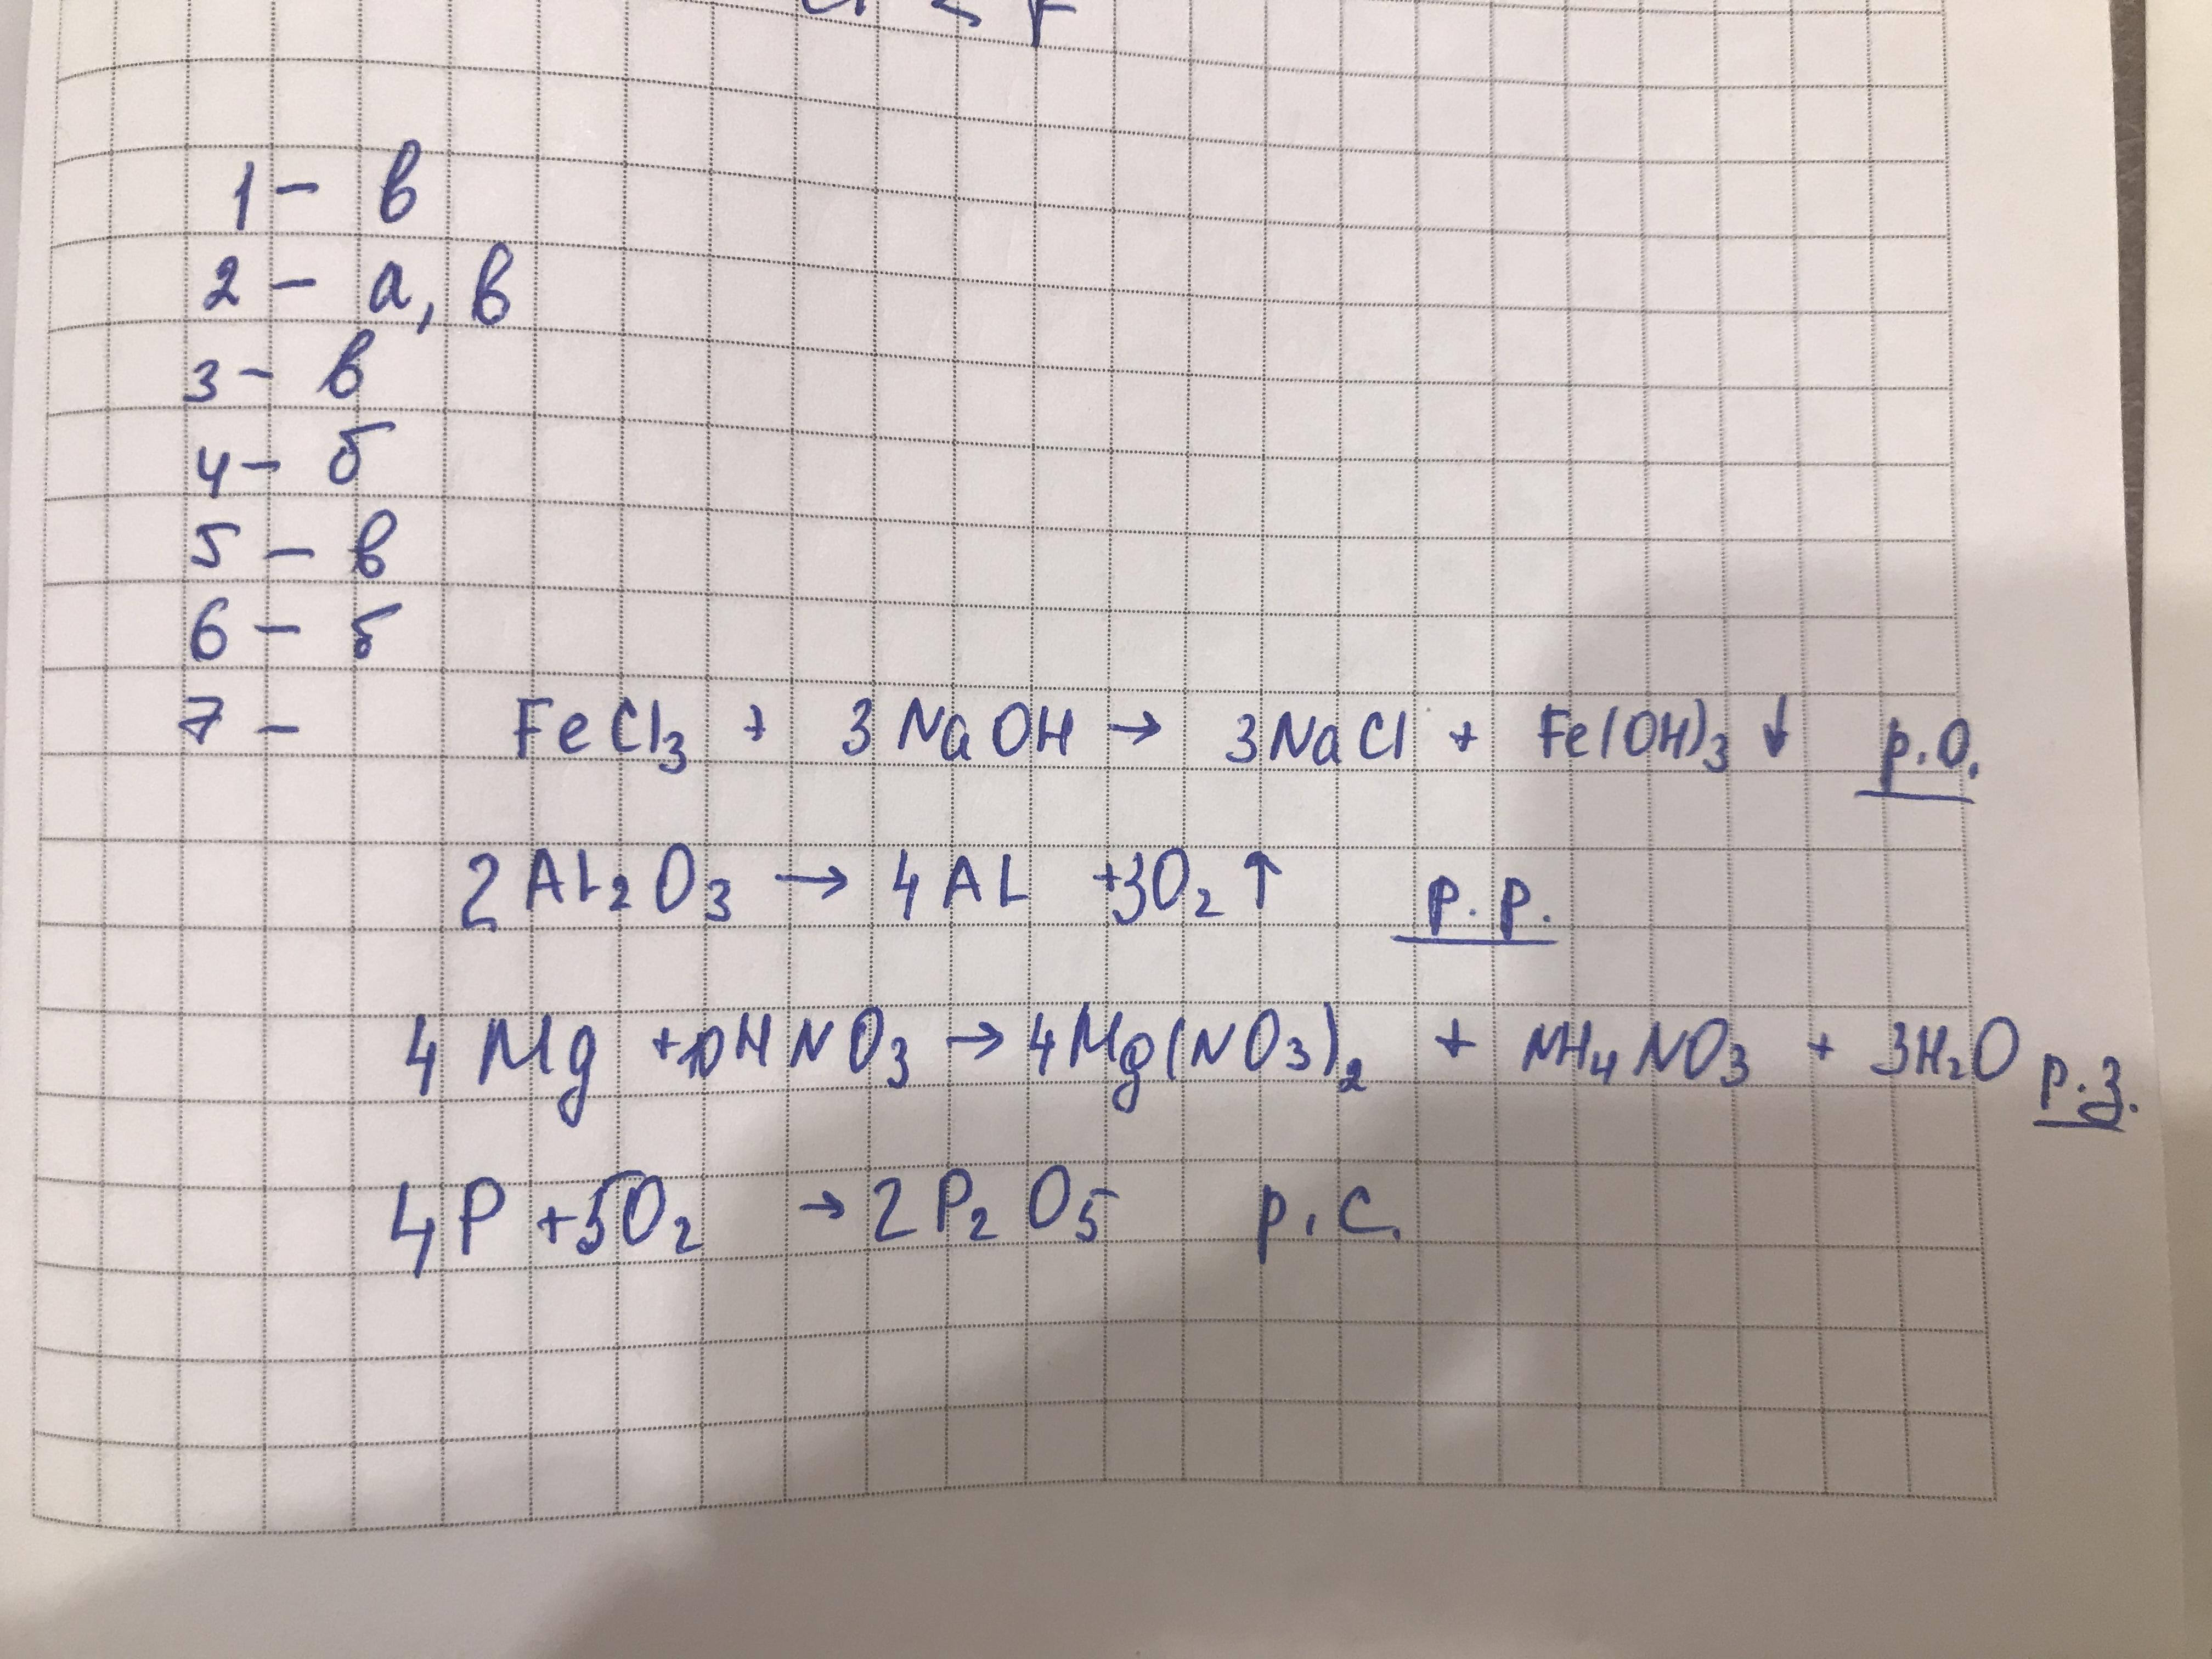 1 - в
2 - а, в
3 - в
4 - б
5 - в
6 - б
7 - FeCl₃ + 3NaOH → 3NaCl + Fe(OH)₃ ↓ р.О.
2Al₂O₃ → 4Al + 3O₂ ↑ р.р.
4Mg + 10HNO₃ → 4Mg(NO₃)₂ + NH₄NO₃ + 3H₂O р.з.
4P + 5O₂ → 2P₂O₅ р.с.